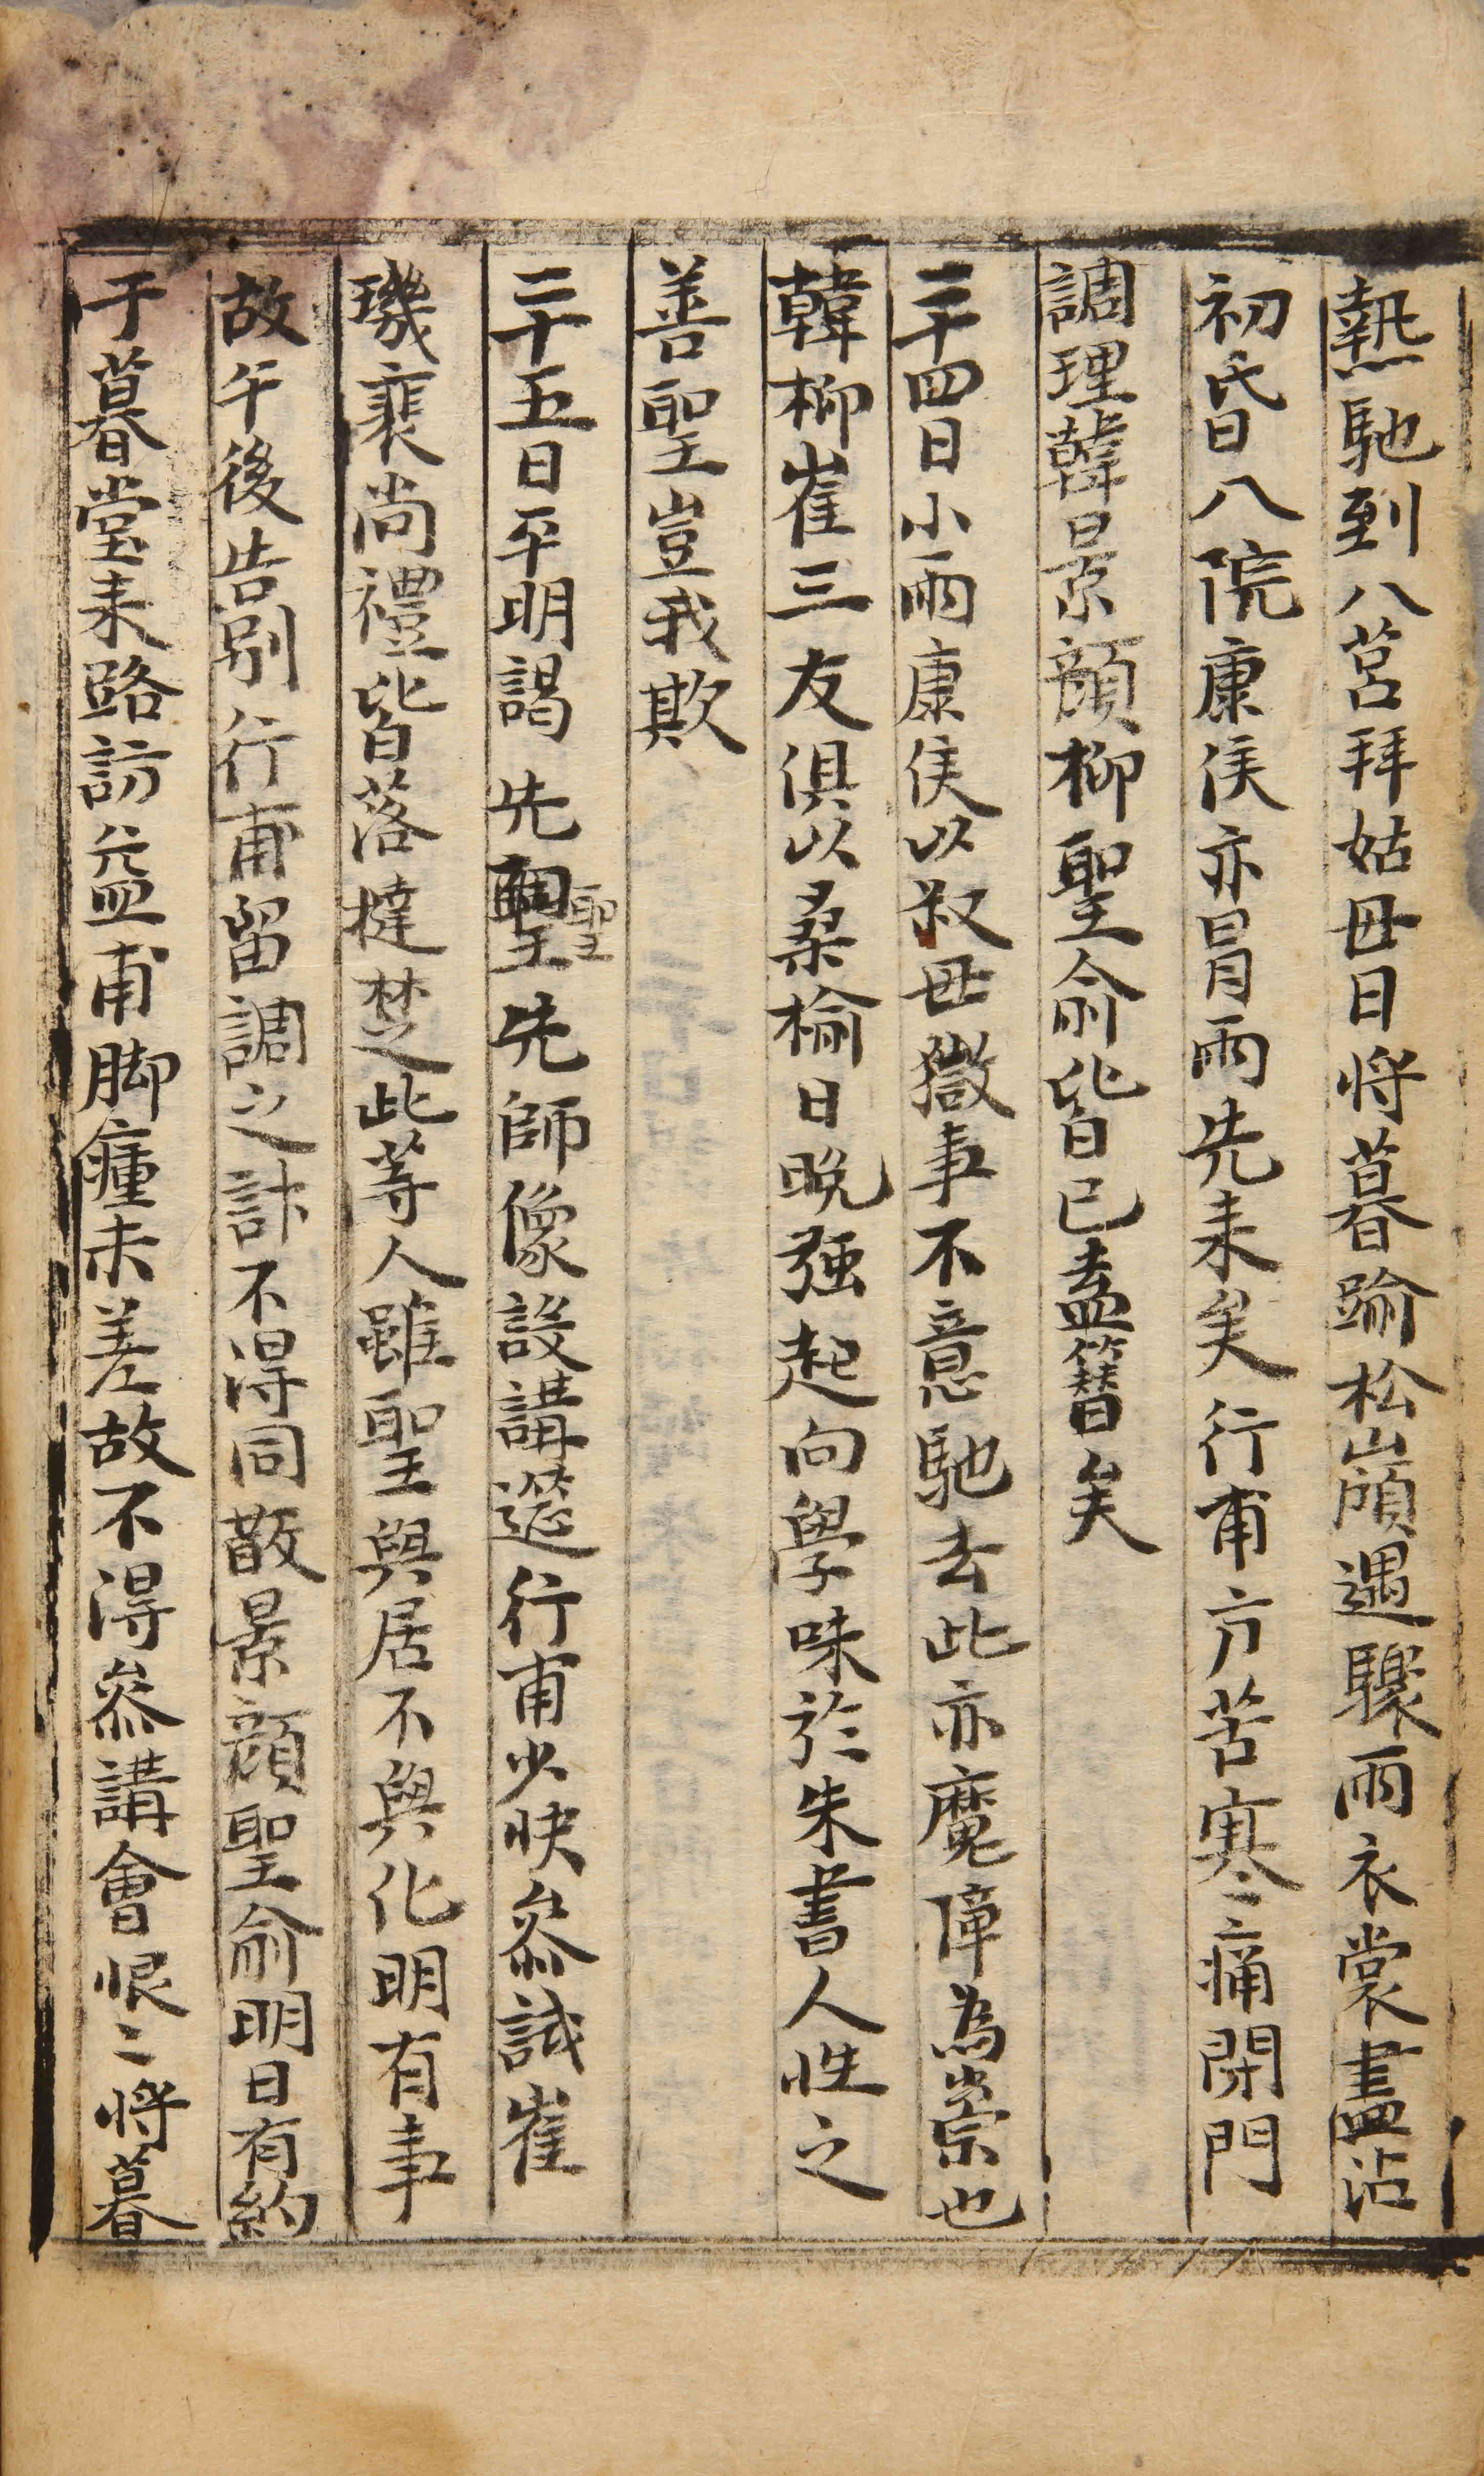 熱馳到八莒拜姑母日將暮踰松巓遇驟雨衣裳盡沾
初昏入院康侯亦冒雨先来矣行甫方苦寒〻痛閉門
調理韓景顔柳聖俞皆已盍簪矣
二十四日小雨康侯以叔母獄事不意馳去此亦魔障為崇也
韓柳崔三友俱以桑楡日晩强起向學味於朱書人性之
善聖豈我欺
二十五日平明謁先聖聖先師像設講遝行甫少快叅試崔
璣裵尚禮皆落撻楚此等人雖聖與居不與化明有事
故午後告別行甫留調之計不得同散景顔聖俞明日有約
于暮堂来路訪益甫脚瘇未差故不得叅講會恨〻將暮